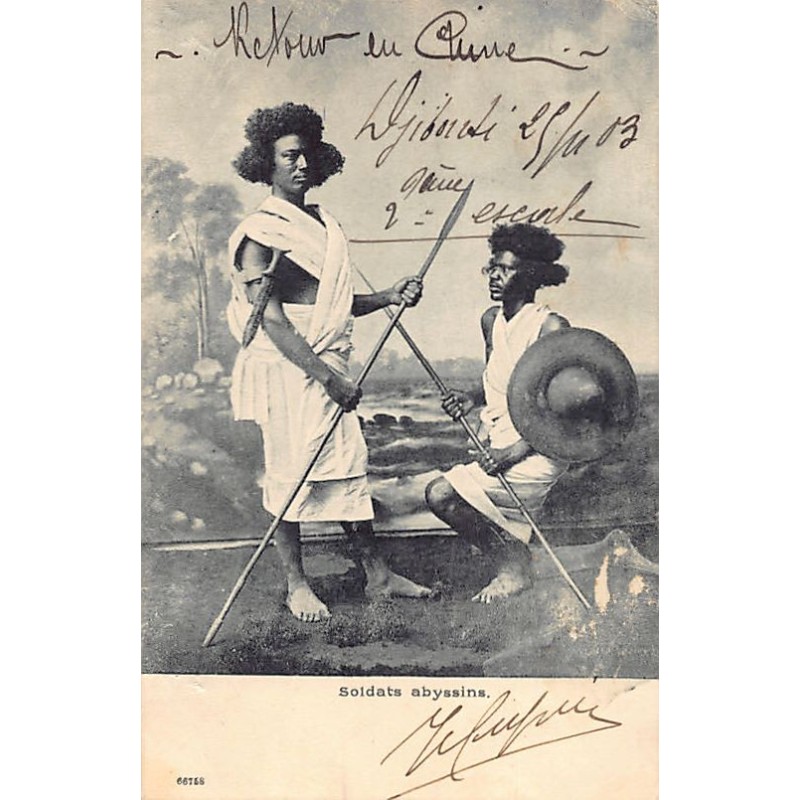 ~. Retour en Chine .~
Djibouti 25/11 03
2ème escale
Soldats abyssins.
66758